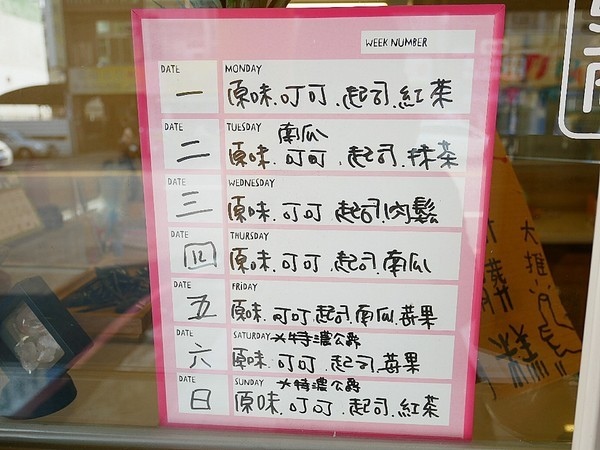 WEEK NUMBER
DATE MONDAY
一 原味.可可.起司.紅茶
DATE TUESDAY 南瓜
二 原味.可可.起司.抹茶
DATE WEDNESDAY
三 原味.可可.起司.肉鬆
DATE THURSDAY
四 原味.可可.起司.南瓜
DATE FRIDAY
五 原味.可可.起司.南瓜.莓果
DATE SATURDAY ※特濃公爵
六 原味.可可.起司.莓果
DATE SUNDAY ※特濃公爵
日 原味.可可.起司.紅茶
大推